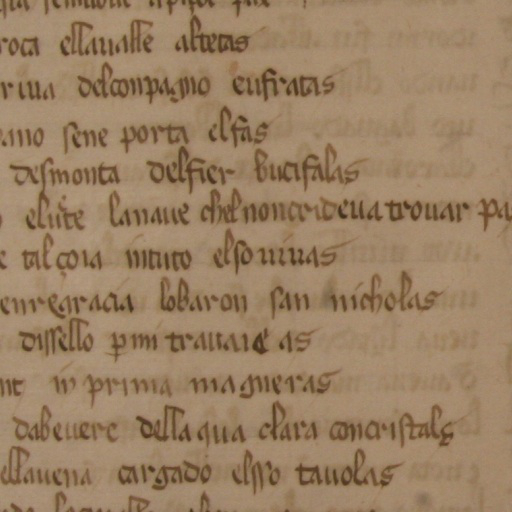 roca ellaualle altetas
riua delconpagno eufratas
ano sene porta elfas
desmonta delfier bucifalas
elutre lanaue chelnoncrideua trouar pa
e tal çoia intuto elso uiuas
enregracia lobaron san nicholas
dissello p mi trauaieas
int in prima magneras
dabeuere dellaqua clara concristals
ellauena cargado elsso tauolas